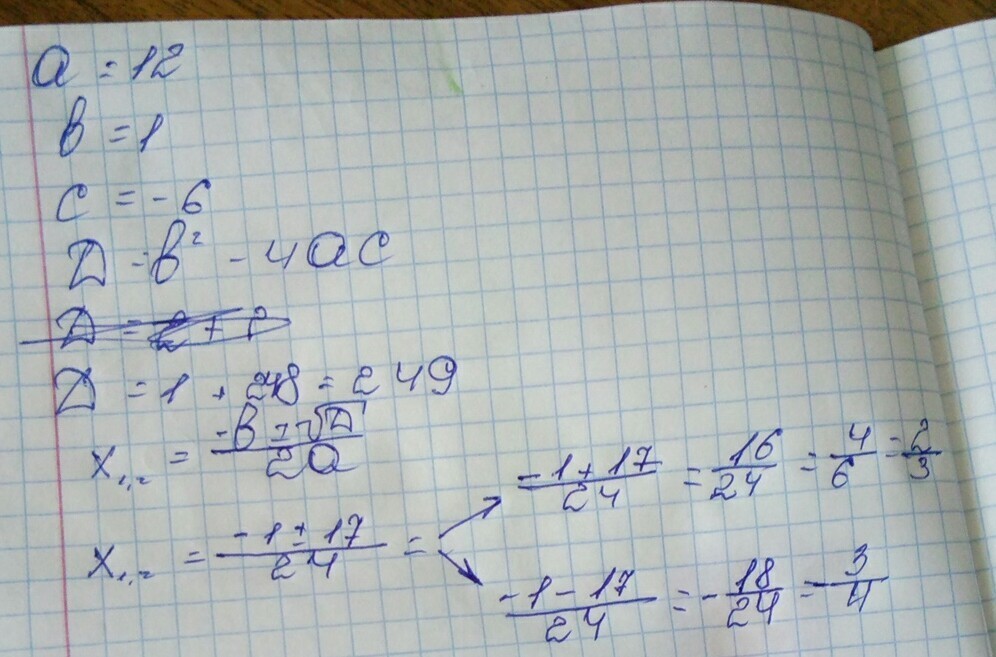 a = 12
b = 1
c = -6
D = b² - 4ac
D = 1 + 248 = 249
x₁,₂ = (-b ± √D)/(2a)
x₁,₂ = (-1 ± 17)/24 =
= (-1 + 17)/24 = 16/24 = 4/6 = 2/3
(-1 - 17)/24 = -18/24 = -3/4